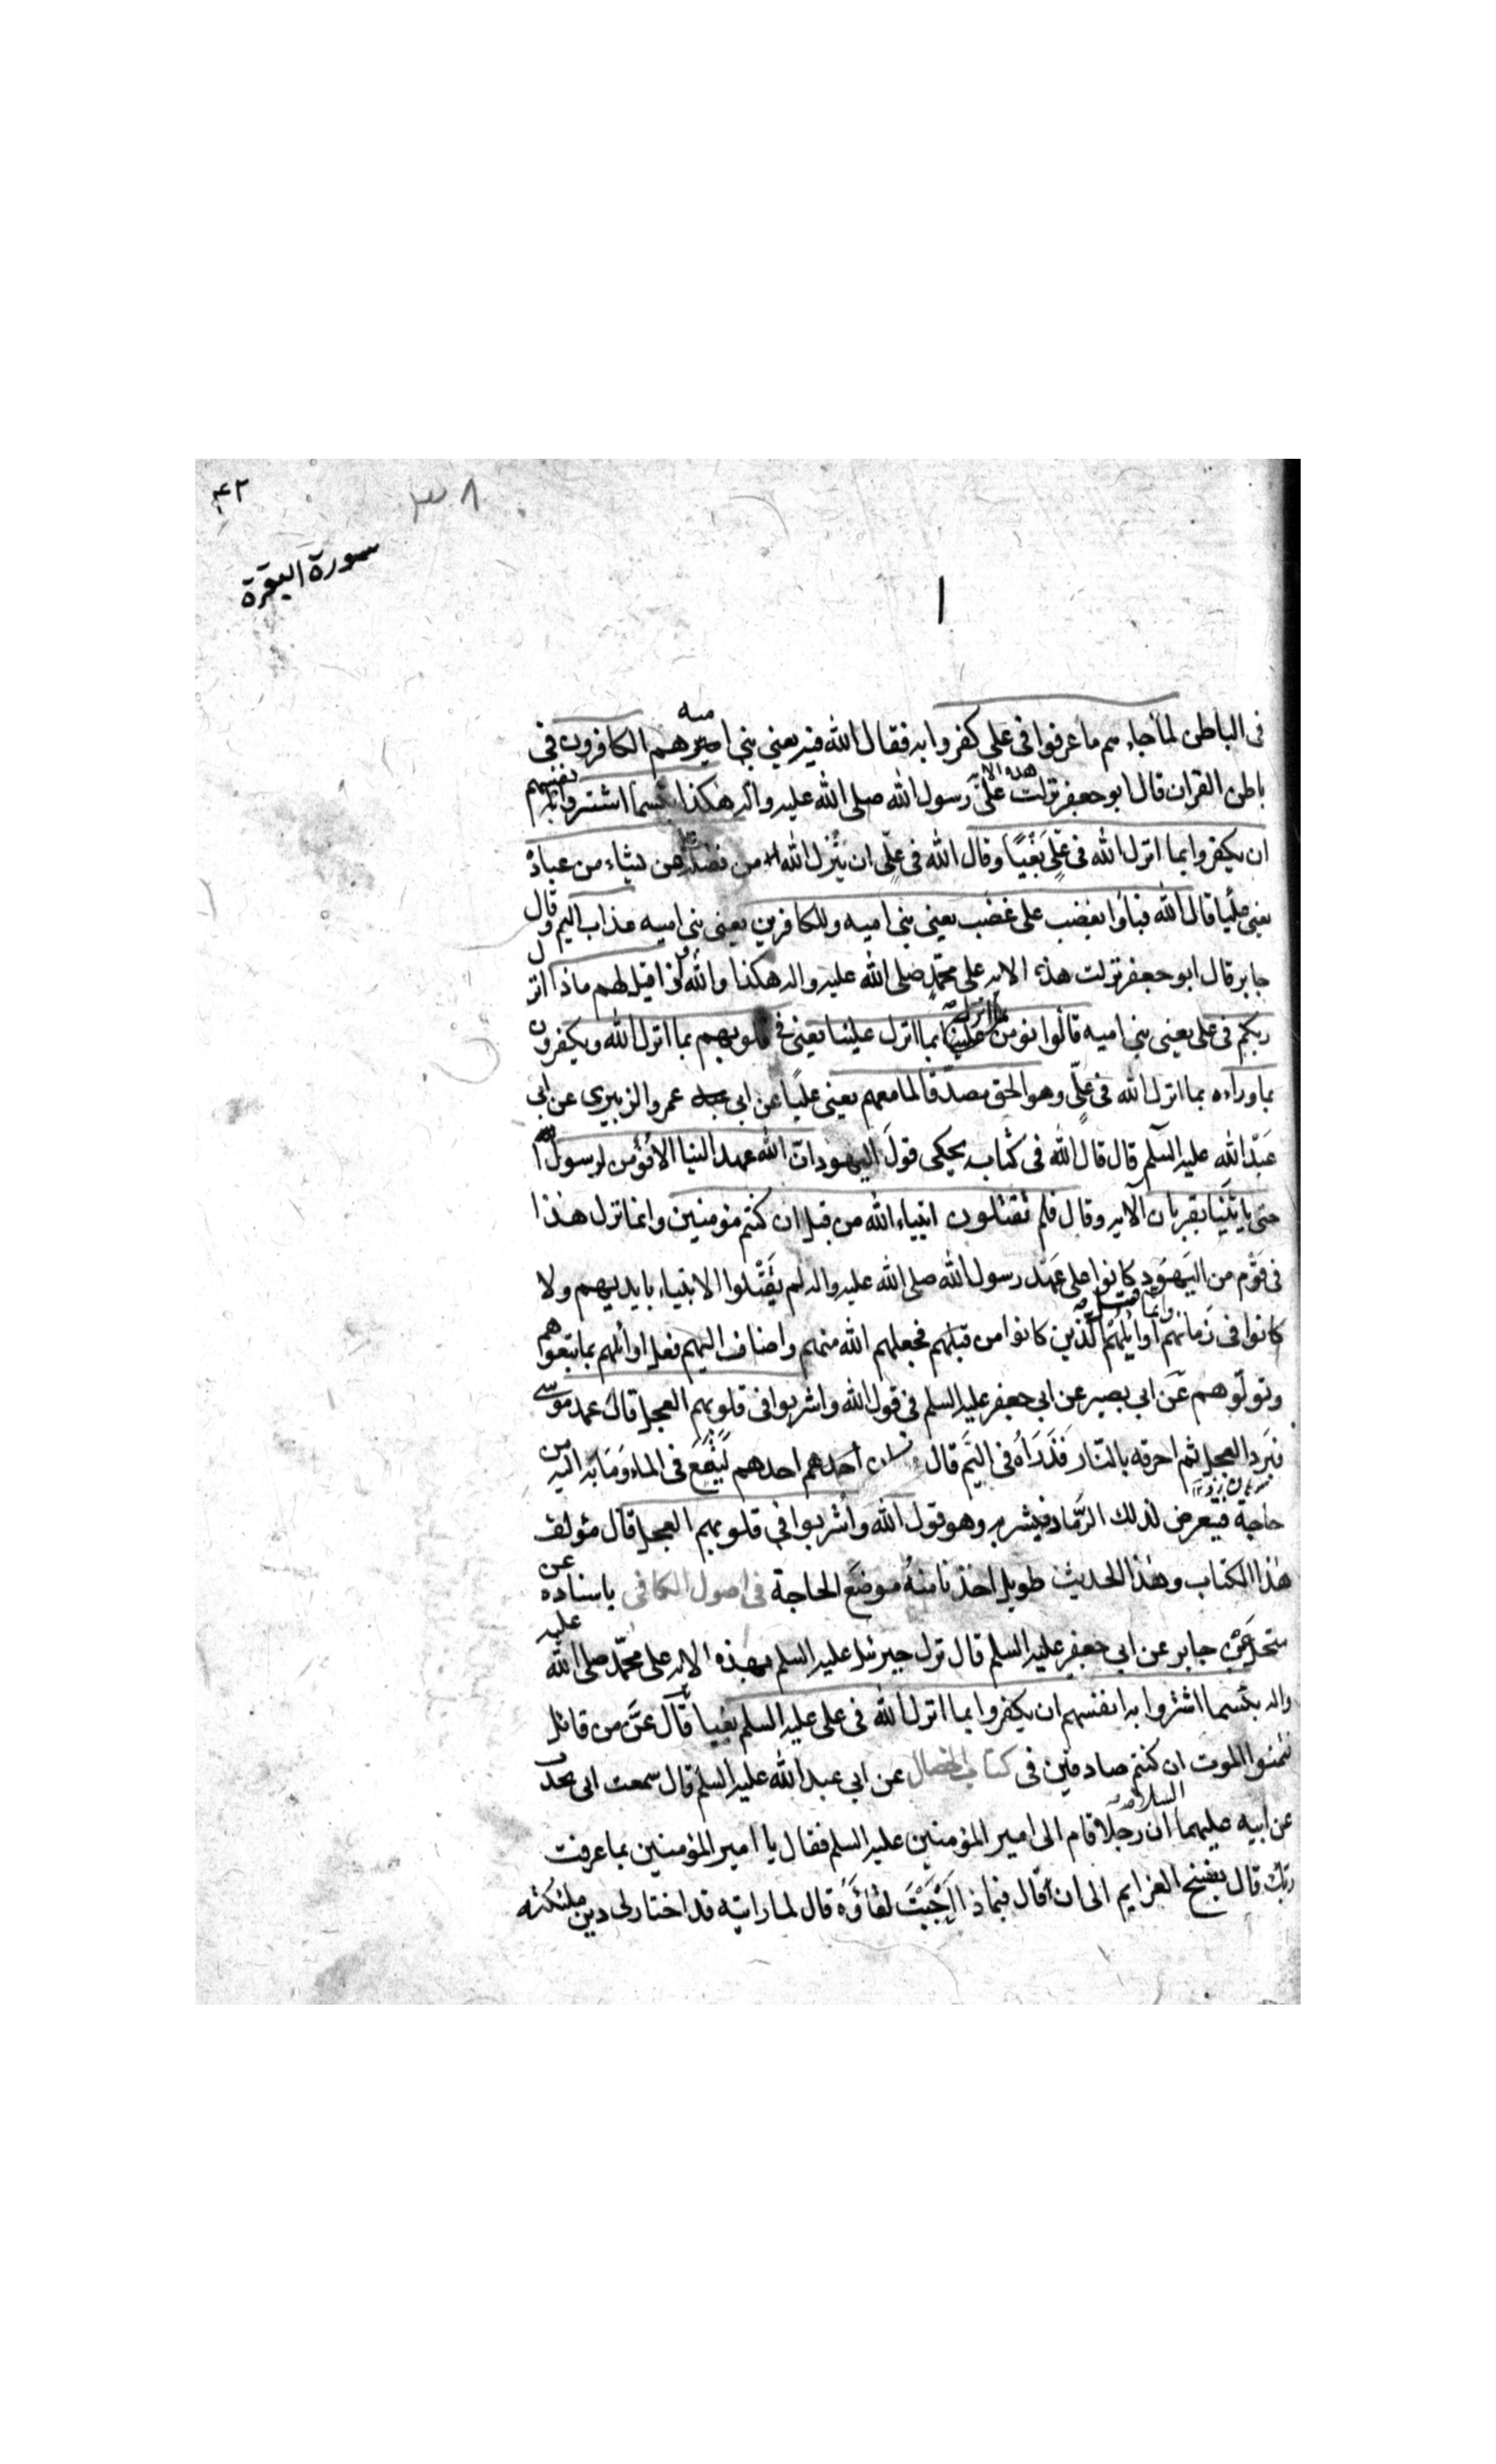 ۴۲
۳۸
سورة البقرة
فى الباطن لما جاءهم ما عرفوا فى على كفروا به فقال الله فيه يعنى بنى اميه هم الكافرون فى
باطن القران قال ابو جعفر نزلت هذه الايه على رسول الله صلى الله عليه واله هكذا بئسما اشتروا به انفسهم
ان يكفروا بما انزل الله فى عَلِىٍّ بَغْيًا وقال الله فى علىّ ان يُنَزِّل الله من فضله على من يشاء من عباده
يعنى عليا قال الله فباؤا بغضب على غضب يعنى بنى اميه وللكافرين يعنى بنى اميه عذاب اليم وقال
جابر قال ابو جعفر نزلت هذه الايه على محمّدٍ صلى الله عليه واله هكذا والله واذا قيل لهم ماذا انزل
ربكم فى على يعنى بنى اميه قالوا نؤمن بما انزل علينا يعنى فى قلوبهم بما انزل الله ويكفرون
بما وراءه بما انزل الله فى علىّ وهو الحق مصدّقا لما معهم يعنى عليًا عن ابى عمرو الزبيرى عن ابى
عبد الله عليه السلم قال قال الله فى كتابه يحكى قول اليهود ان الله عهد الينا الا نؤمن لرسول
حتى ياتينا بقربان الآيه وقال فلم تقتلون انبياء الله من قبل ان كنتم مؤمنين وانما نزل هذا
فى قوم من اليهود كانوا على عهد رسول الله صلى الله عليه واله لم يَقْتُلوا الانبياء بايديهم ولا
كانوا فى زمانهم وانما قتل اوايلهم الذين كانوا من قبلهم فجعلهم الله منهم واضاف اليهم فعل اوائلهم بما تبعوهم
وتولوهم عن ابى بصير عن ابى جعفر عليه السلم فى قول الله واشربوا فى قلوبهم العجل قال عمد موسى
فبرد العجل ثم احرقه بالنار فذراه فى اليم قال فكان احدهم ليقع فى الماء وما به اليه من
حاجة فيتعرض لذلك الرّماد فيشربه وهو قول الله وأشربوا فى قلوبهم العجل قال مؤلف
هذا الكتاب وهذا الحديث طويل اخذنا منه موضع الحاجة فى اصول الكافى باسناده عن
منخل عن جابر عن ابى جعفر عليه السلم قال نزل جبرئيل عليه السلم بهذه الايه على محمّد صلى الله عليه
واله بئسما اشتروا به انفسهم ان يكفروا بما انزل الله فى على عليه السلم بغيا قال عزّ من قائل
فتمنوا الموت ان كنتم صادقين فى كتاب الخصال عن ابى عبد الله عليه السلم قال سمعت ابى يحدث
عن ابيه عليهما السلام ان رجلا قام الى امير المؤمنين عليه السلم فقال يا امير المؤمنين بما عرفت
ربك قال بفسخ العزايم الى ان قال فبماذا اَحْبَبْتَ لقاؤه قال لما رايته قد اختار لى دين ملئكته